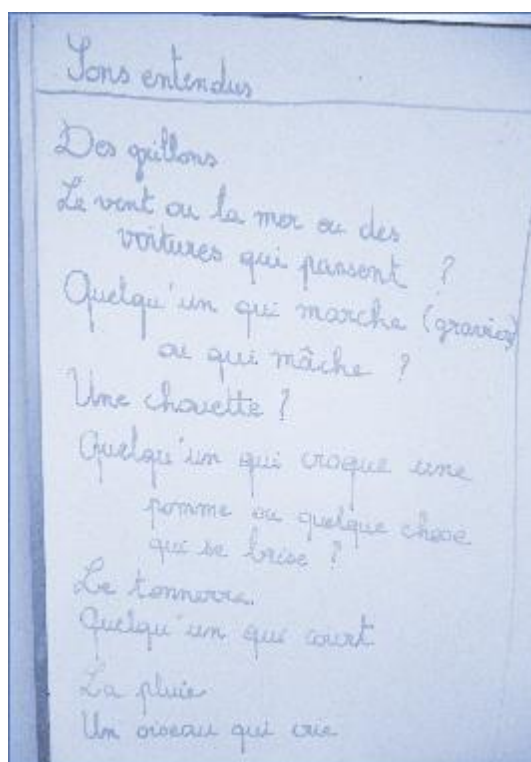 Sons entendus
Des grillons
Le vent ou la mer ou des
voitures qui passent ?
Quelqu'un qui marche (gravier)
ou qui mâche ?
Une chouette ?
Quelqu'un qui croque une
pomme ou quelque chose
qui se brise ?
Le tonnerre.
Quelqu'un qui court
La pluie
Un oiseau qui crie